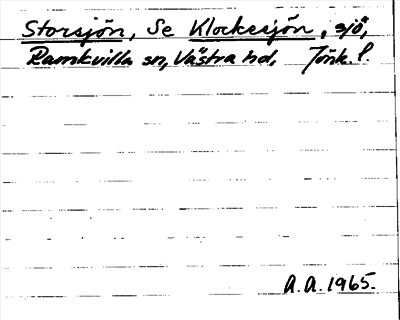 Storsjön, Se Klockesjön, sjö,
Ramkvilla sn, Västra hd, Jönk. l.
A.A. 1965.